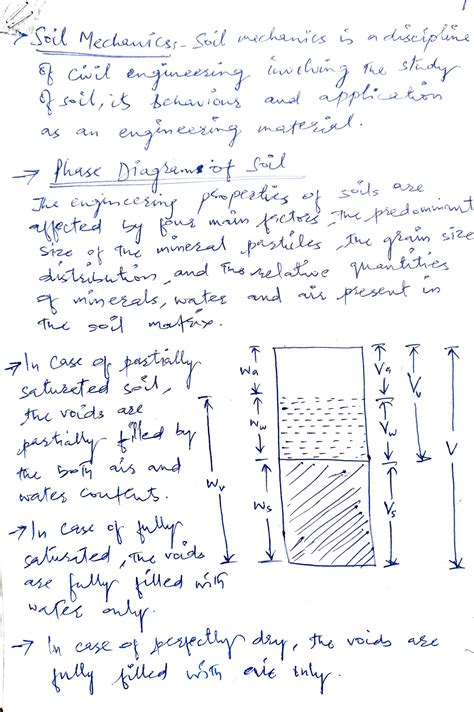 1
→ Soil Mechanics:- Soil mechanics is a discipline
of civil engineering involving the study
of soil, its behaviour and application
as an engineering material.
→ Phase Diagrams of Soil
The engineering properties of soils are
affected by four main factors, the predominant
size of the mineral particles, the grain size
distribution, and the relative quantities
of minerals, water and air present in
the soil matrix.
→ In case of partially
saturated soil,
the voids are
partially filled by
the both air and
water contents.
→ In case of fully
saturated, the voids
are fully filled with
water only.
Wa
Va
Vv
Ww
Vw
V
Wv
Ws
Vs
→ In case of perfectly dry, the voids are
fully filled with air only.